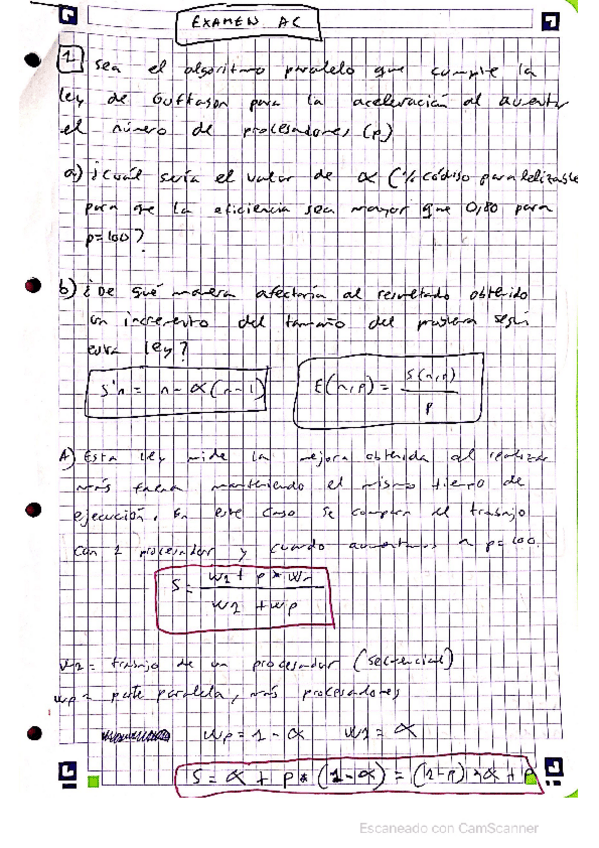 EXAMEN AC
1 Sea el algoritmo paralelo que cumple la
ley de Guftason para la aceleración al aumentar
el número de procesadores (p)
a) ¿Cuál sería el valor de α (% código paralelizable
para que la eficiencia sea mayor que 0,80 para
p=100?
b) ¿De qué manera afectaría al resultado obtenido
un incremento del tamaño del problema según
esta ley?
S'n = n - α(n-1)
E(n,p) = S(n,p) / p
A) Esta ley mide la mejora obtenida al realizar
más faena manteniendo el mismo tiempo de
ejecución. En este caso se compara el trabajo
con 1 procesador y cuando aumentamos a p=100.
S = w1 + p * wp / w1 + wp
w1 = trabajo de un procesador (secuencial)
wp = parte paralela, más procesadores
wp = 1 - α w1 = α
S = α + p * (1-α) = (1-p) * α + p
Escaneado con CamScanner